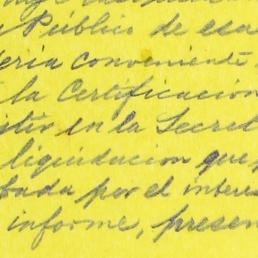 Público de esa
eria conveniente
la Certificación
stir en la Secret
liquidacion que
bada por el interes
informe, presen